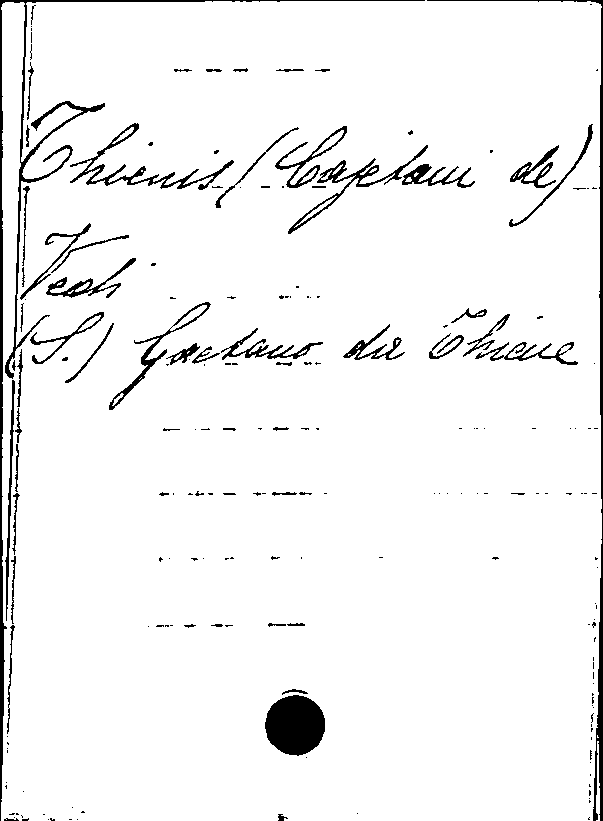 Thienis (Cajetani de)
Vedi
(S.) Gaetano da Thiene